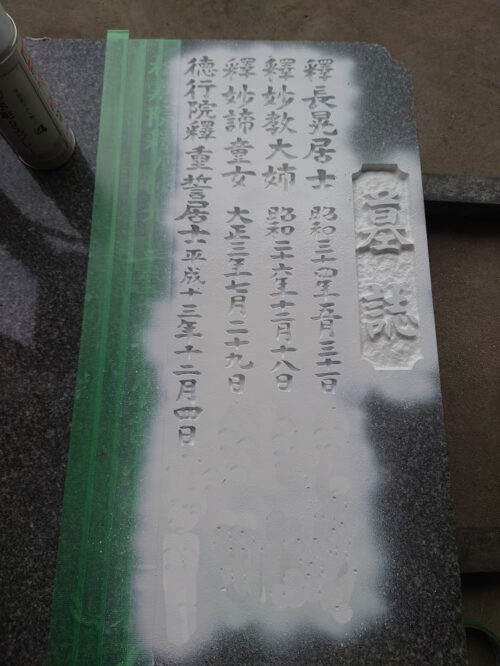 墓誌
釋長晃居士 昭和三十四年五月三十一日
釋妙教大姉 昭和二十六年十二月十八日
釋妙諦童女 大正三年七月二十九日
德行院釋重誓居士 平成十三年十二月四日